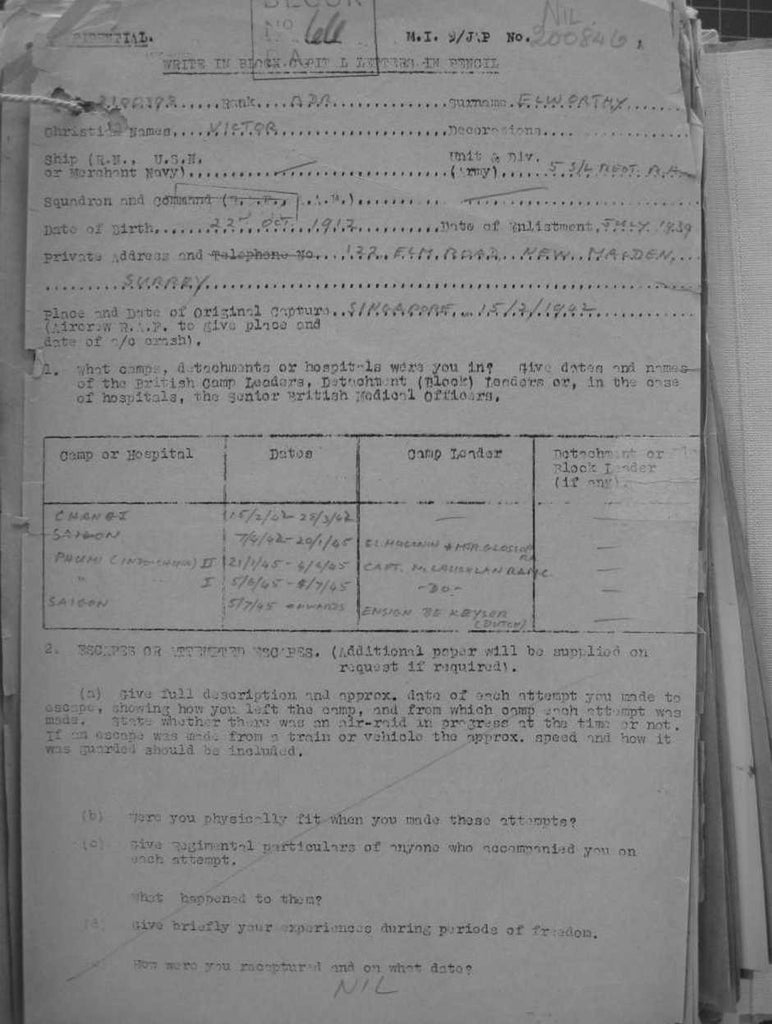 No 66
M.I. 9/JAP No. NIL 200846
WRITE IN BLOCK CAPITAL LETTERS IN PENCIL
Rank... BDR ... Surname. ELWORTHY
Christian Names.... VICTOR ... Decorations....
Ship (R.N., U.S.N. Unit & Div.
or Merchant Navy)... (Army).... 5 S/L REGT. R.A.
Squadron and Command
Date of Birth.... 22nd OCT. 1912 ... Date of Enlistment. JULY 1939
Private Address and Telephone No... 132 ELM ROAD.. NEW MALDEN,
SURREY
Place and Date of Original Capture.. SINGAPORE... 15/2/1942
(Aircrew R.A.F. to give place and
date of a/c crash).
1. What camps, detachments or hospitals were you in? Give dates and names
of the British Camp Leaders, Detachment (Block) Leaders or, in the case
of hospitals, the Senior British Medical Officers.
Camp or Hospital Dates Camp Leader Detachment or
Block Leader
(if any).
CHANGI 15/2/42 - 25/3/42 —
SAIGON 7/4/42 - 20/1/45
PHUMI (INDO-CHINA) II 21/1/45 - 4/6/45 CAPT. McLAUGHLAN
" I 5/6/45 - 4/7/45 -DO-
SAIGON 5/7/45 ONWARDS ENSIGN DE KEYSER
(DUTCH)
2. ESCAPES OR ATTEMPTED ESCAPES. (Additional paper will be supplied on
request if required).
(a) Give full description and approx. date of each attempt you made to
escape, showing how you left the camp, and from which camp each attempt was
made. State whether there was an air-raid in progress at the time or not.
If an escape was made from a train or vehicle the approx. speed and how it
was guarded should be included.
(b) Were you physically fit when you made these attempts?
(c) Give Regimental particulars of anyone who accompanied you on
each attempt.
What happened to them?
(d) Give briefly your experiences during periods of freedom.
How were you recaptured and on what date?
NIL